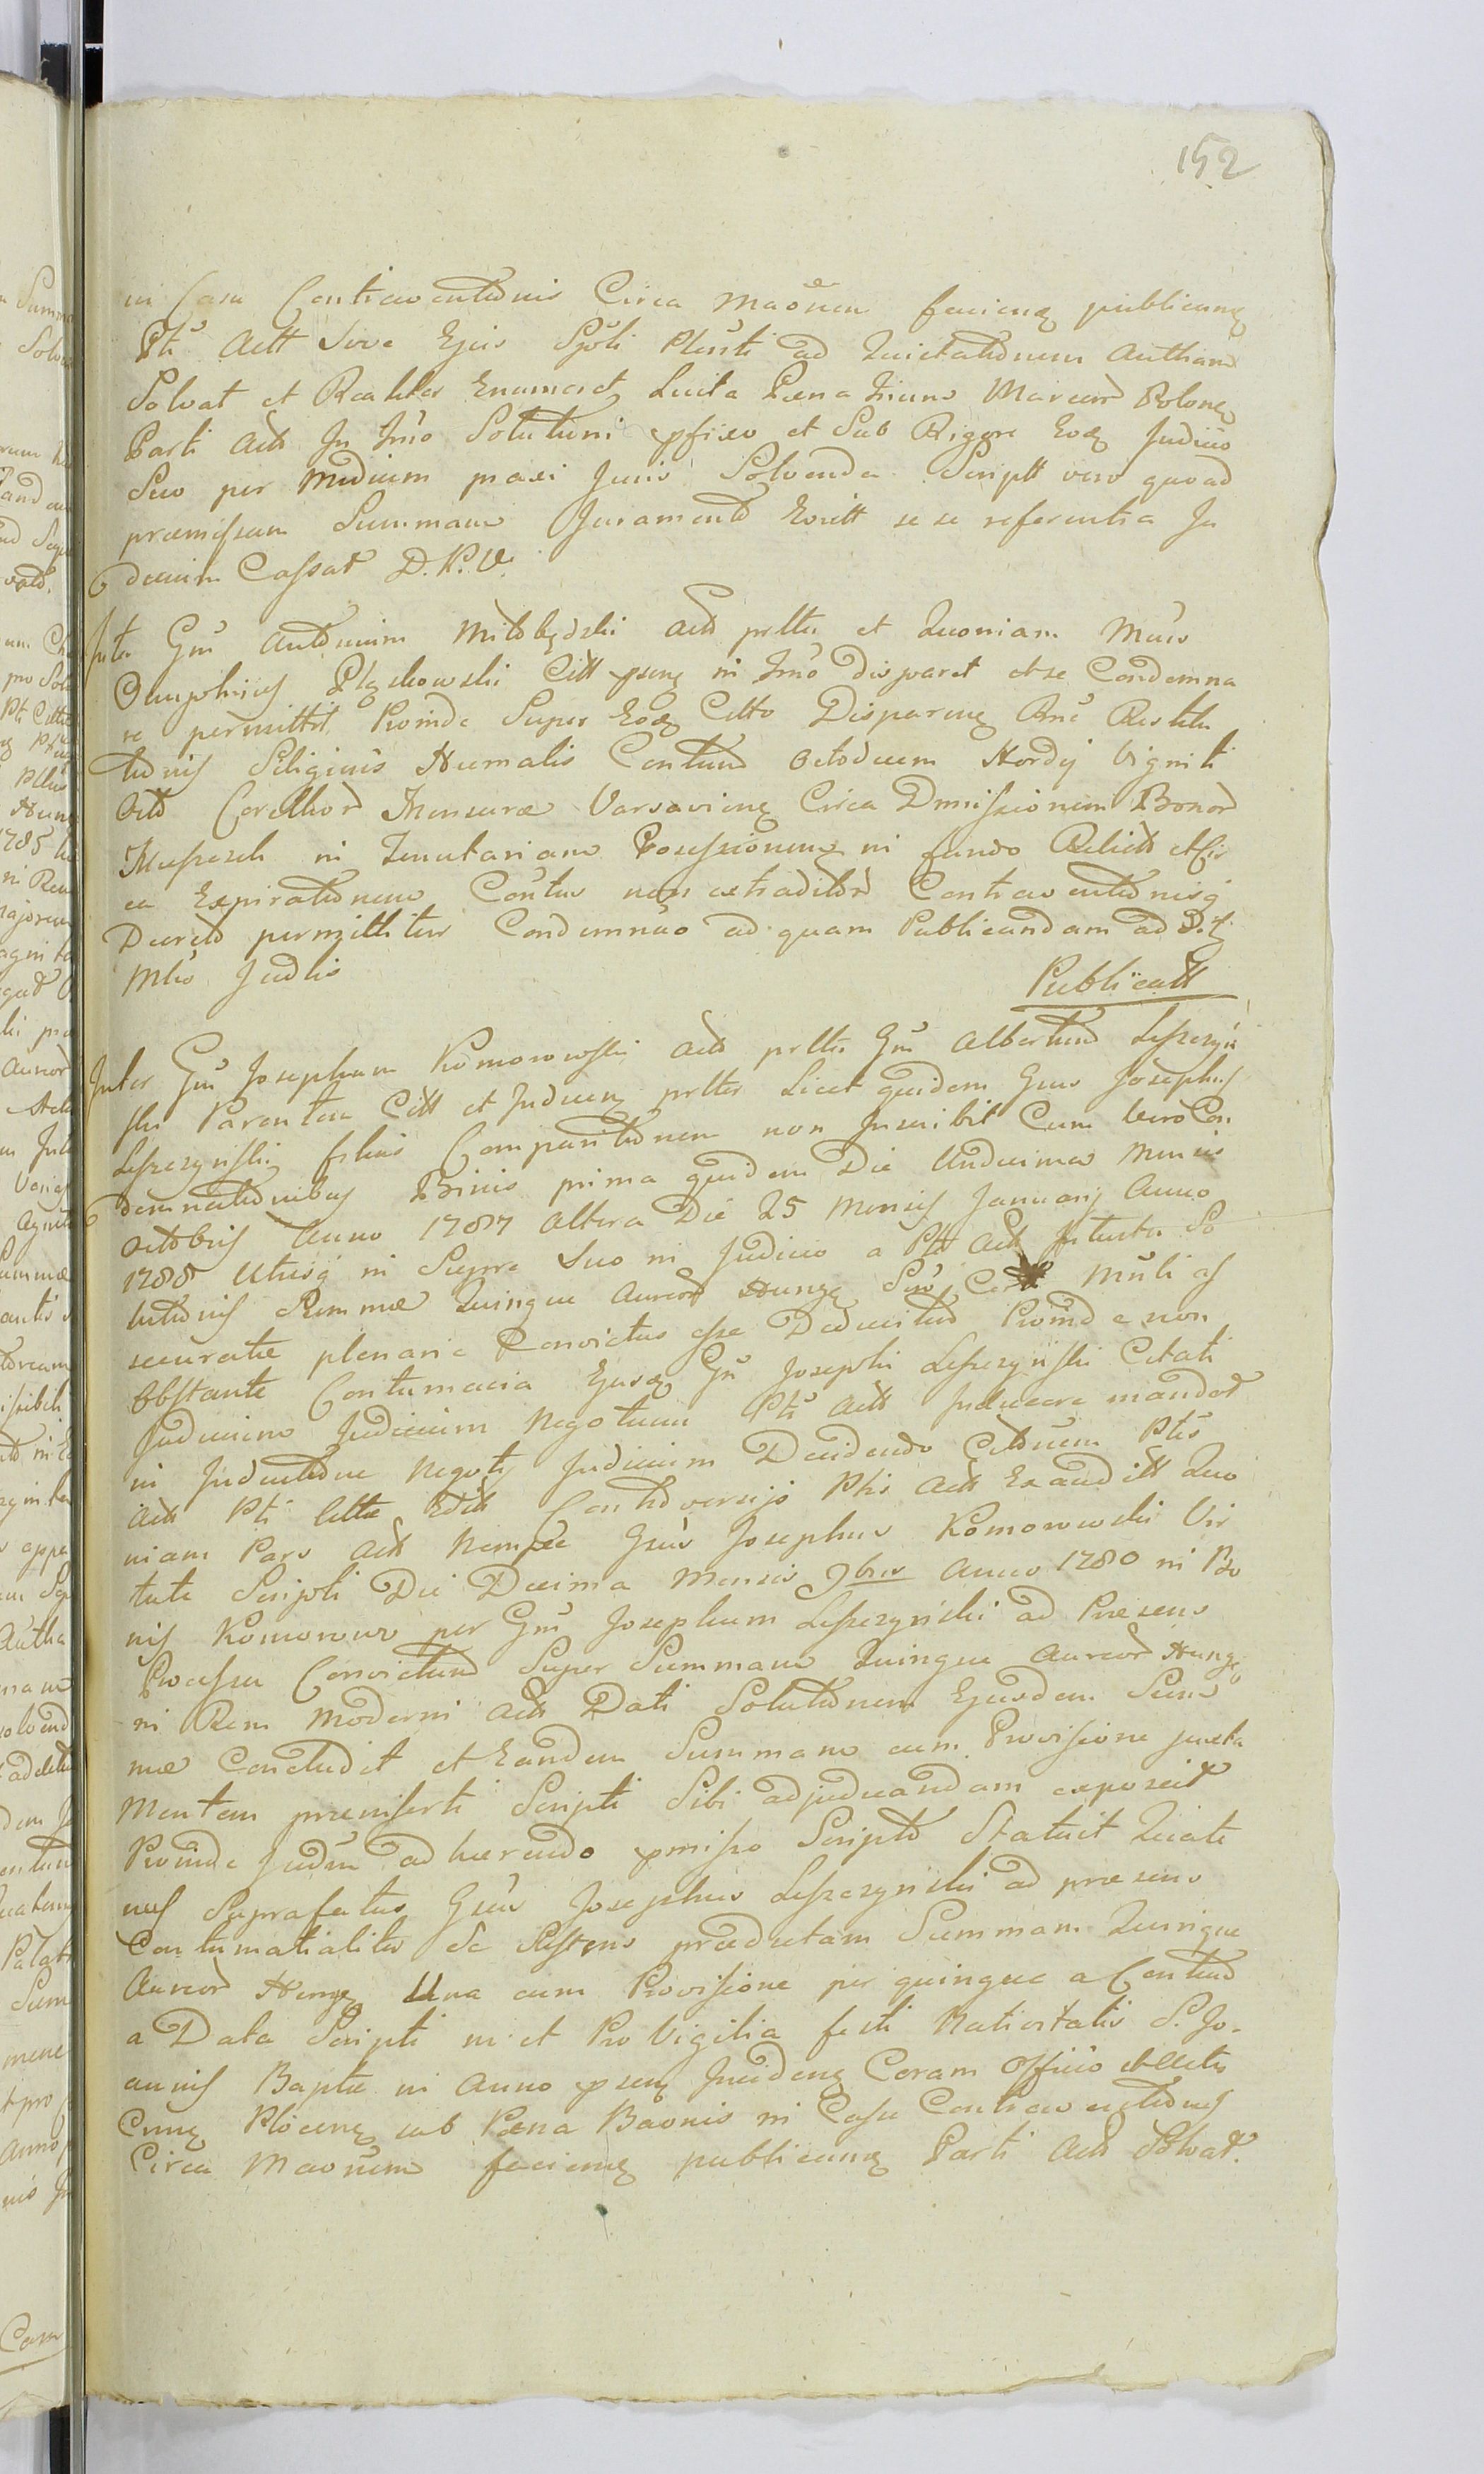 152
in Casu Contraventionis Circa maönem facienę publicanę
Pti Actt sive Ejus Spoli Plenti ad Quietationem Autham
Solvat et Realiter Enumeret Luita Pæna trium Marcar Polon
Parti Actt In Tmo Solutioni pfixo et Sub Rigore Eodę Judicio
Suo per Medium praxi Juris Solvenda Scriptt vero quoad
præmissam Summam Juramento Evictt se se referentia In
decim Cassat D. P. V.
Inter Gm Antonium Miłobędzki Actt prltter et Quoniam Mucus
Onuphrius Płąskowski Citt psens in Tmo Disparet et se Condemna
re permittit Proinde Super Eodę Citto Disparenę Rne Restitu
tionis Siliginis Hiemalis Centum Octodecim Hordej Viginti
Octo Corcthor Mensuræ Varsavienę Circa Dmissionem Bonor
in Tenutariam Possessionemę in fundo Relictt et Cir
ca Expirationem Contus non extraditor Contraventionisq
Decreto permittitur Condemnao ad quam Publicandam ad
Mtio Judtis
Publicatt
Inter Gm Josephum Komorowski Actt prltter Gm Albertum Leszczyń
ski Parentem Citt et Inducenę prltter Licet quidem Gnus Josephus
Leszczyński filius Comparitionem non Inscribit Cum vero Con
demnationibus Binis prima quidem Die Undecima Mensis
Octobris Anno 1787 altera Die 25 Mensis Januarij Anno
1788 Utrisq in Supra Suo in Judicio a Pte Actt Intuitu So
lutionis Summæ Quinque Aureor Hungę Muti as
securatæ plenarie Convictus esse Deducitur Proinde non
Obstante Contumacia Ejusdę Gn Josephi Leszczyński Citati
Judicium Judicium Negotium Pti Actt Inducere mandat
in Inductione Negotij Judicium Decidendo Citonem Ptis
Actt Pti Citta Editt Controversijs Ptis Actt Exauditt Quo
niam Pars Actt Nempe Gnus Josephus Komorowski Vir
tute Scripti Die Decima Mensis 9bris Anno 1780 in Bo
nis Komorowo per Gm Josephum Leszczyński ad Præsens
Processu Convictum Super Summam Quinque Aureor Hungę
in Rem Moderni Actt Dati Solutionem Ejusdem Sum
mæ Concludit et Eandem Summam cum Provisione juxta
Mentem præinserti Scripti Sibi adjudicandam exposcit
Proinde Judm adhærendo pmisso Scripto Statuit Quate
nus Suprafatus Gnus Josephus Leszczyński ad præsens
Contumatialiter Se Sistens prædictam Summam Quinque
Aureor Hungę Una cum Provisione per quinque a Centum
a Data Scripti in et Pro Vigilia festi Nativitatis S. Jo-
annis Baptæ in Anno psenę Incidenę Coram Officio
Crnę Plocenę sub Pæna Baonis in Casu Contraventionis
Circa Maonem facienę publicanę Parti Actt Solvat.